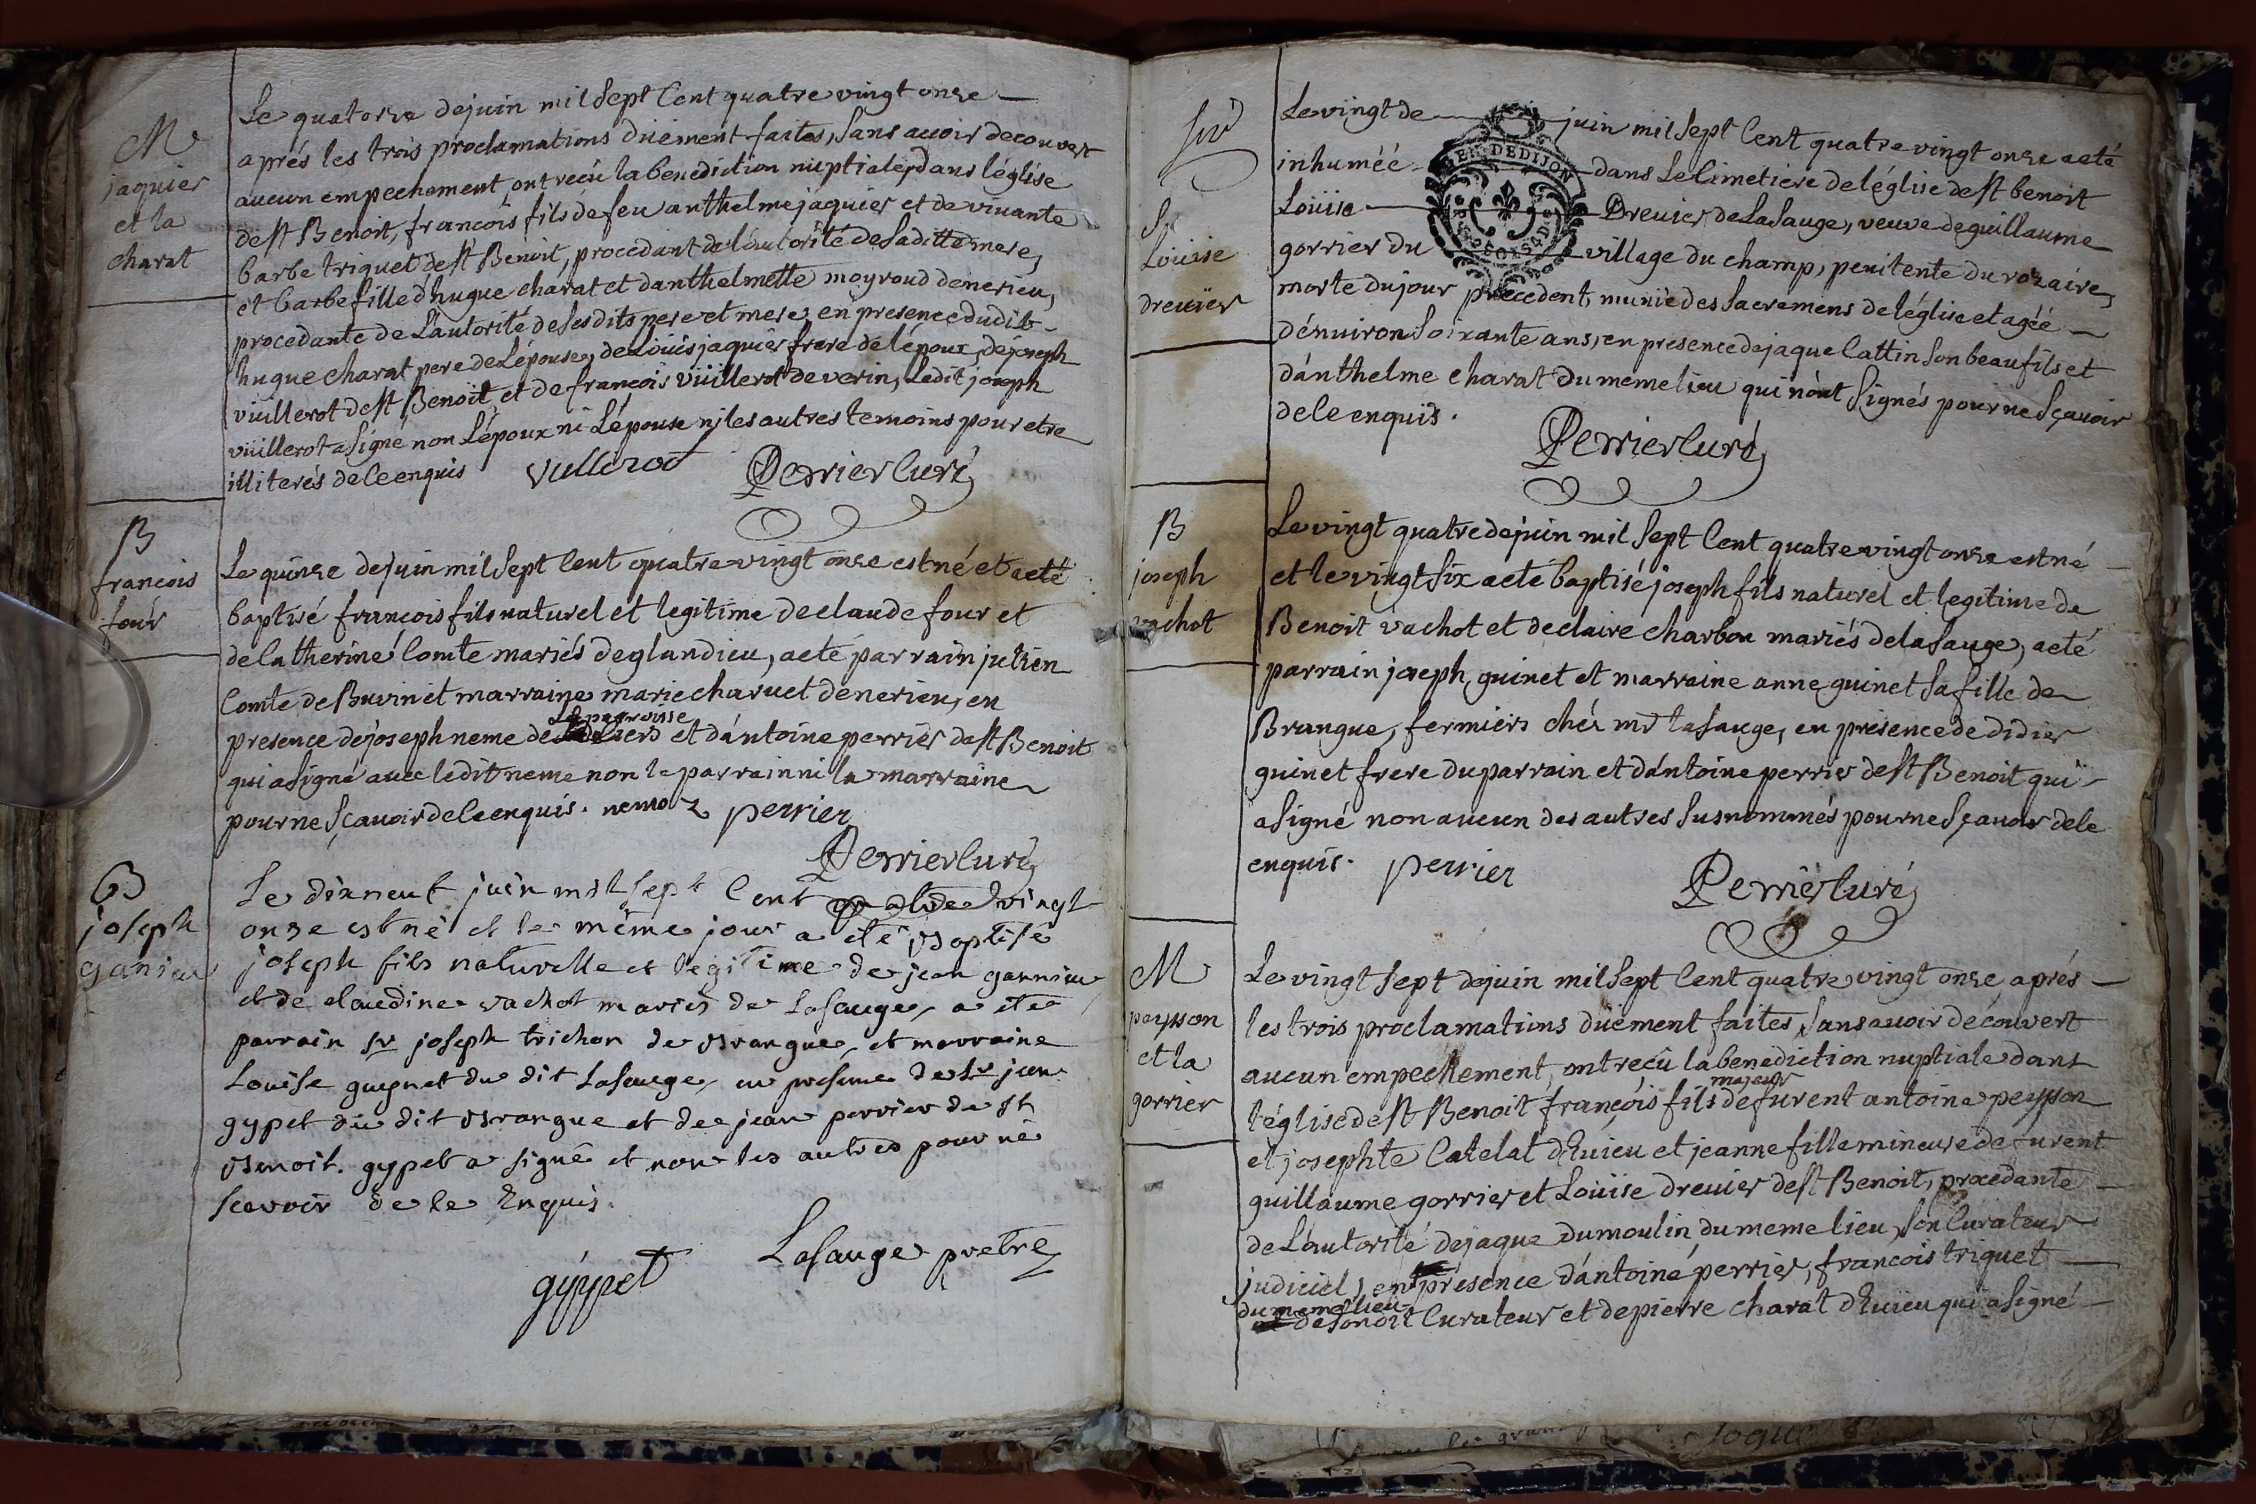 M
jaquier
et la
charat
Le quatorze dejuin mil sept Cent quatre vingt onze
aprés les trois proclamations düement faites, sans auoir decouvert
aucun empechement, ont recü la benediction nuptiale, dans léglise
de st Benoit, francois fils de feu anthelme jaquier et de viuante
barbe triquet de st Benoit, procedant de láutorité de sa ditte mere,
et barbe fille dhugue charat et danthelmette moyroud denerieu,
procedante de Láutorité de ses dits pere et mere, en presence dudit
hugue charat pere de Lépouse, de Loüis jaquier frere de lépoux, de joseph
viüllerot de st Benoit et de francois viüllerot de verin, Ledit joseph
viüllerot a signé non Lépoux ni Lépouse nj les autres temoins pour etre
illiterés de ce enquis vullerot Perrier Curé
B
francois
four
Le quinze dejuin mil sept Cent quatre vingt onze est né et a eté
baptisé francois fils naturel et legitime de claude four et
de Catherine Comte mariés de glandieu, a eté parrain julien
Comte de Buvin et marraine marie charuet denerieu, en
La paroisse
presence de joseph neme de et dántoine perrier de st Benoit
qui a signé auec ledit neme non le parrain ni la marraine
pour ne sçauoir de ce enquis. nemoz perrier
Perrier Curé
B
joseph
ganieu
Le dixneuf juin mil sept Cent quatre vingt
onze est né et le même jour a eté Baptisé
joseph fils naturelle et legitime de jean gannieu
et de claudine vachot mariés de Lasauge, a eté
parrain sr joseph trichon de Brangue, et marraine
Louise guynet du dit Lasauge, en presence de sr jean
gypet du dit Brangue et de jean perrier de st
Benoit. gypet a signé et non les autres pour ne
scavoir de ce Enquis.
gÿypet Lasauge pretre
S
Loüise
dreuier
Le vingt de juin mil sept Cent quatre vingt onze a eté
inhumée dans Le Cimetiere de léglise de st benoit
Loüise Dreuier de Lasauge, veuve de guillaume
gorrier du village du champ, penitente du rozaire,
morte du jour precedent, munie des sacremens de léglise et agéé
dénuiron soixante ans, en presence de jaque Cattin son beau fils et
dánthelme charat du meme lieu qui nónt signés pour ne sçauoir
de ce enquis.
Perrier Curé
GEN DE DIJON
B
joseph
vachot
Le vingt quatre dejuin mil sept Cent quatre vingt onze est né
et le vingt six a eté baptisé joseph fils naturel et legitime de
Benoit vachot et de claire charbon mariés de lasauge, a eté
parrain joseph guinet et marraine anne guinet sa fille de
Brangue, fermiers chés mr lasauge, en presence de didier
guinet frere du parrain et dántoine perrier de st Benoit qui
a signé non aucun des autres susnommés pour ne sçauoir de ce
enquis. perrier Perrier Curé
M
peysson
et la
gorrier
Le vingt sept dejuin mil sept Cent quatre vingt onze aprés
les trois proclamations düement faites, sans auoir découvert
aucun empechement, ont recü la benediction nuptiale dans
majeur
léglise de st Benoit françois fils de furent antoine peysson
et josephte Catelat dEuieu et jeanne fille mineure de furent
guillaume gorrier et Loüise dreuier de st Benoit, procedante
de Láutorité de jaque dumoulin du meme lieu, son Curateur
judiciel, en presence dántoine perrier, francois triquet
du meme lieu
de st Benoit Curateur et de pierre charat dEuieu qui a signé